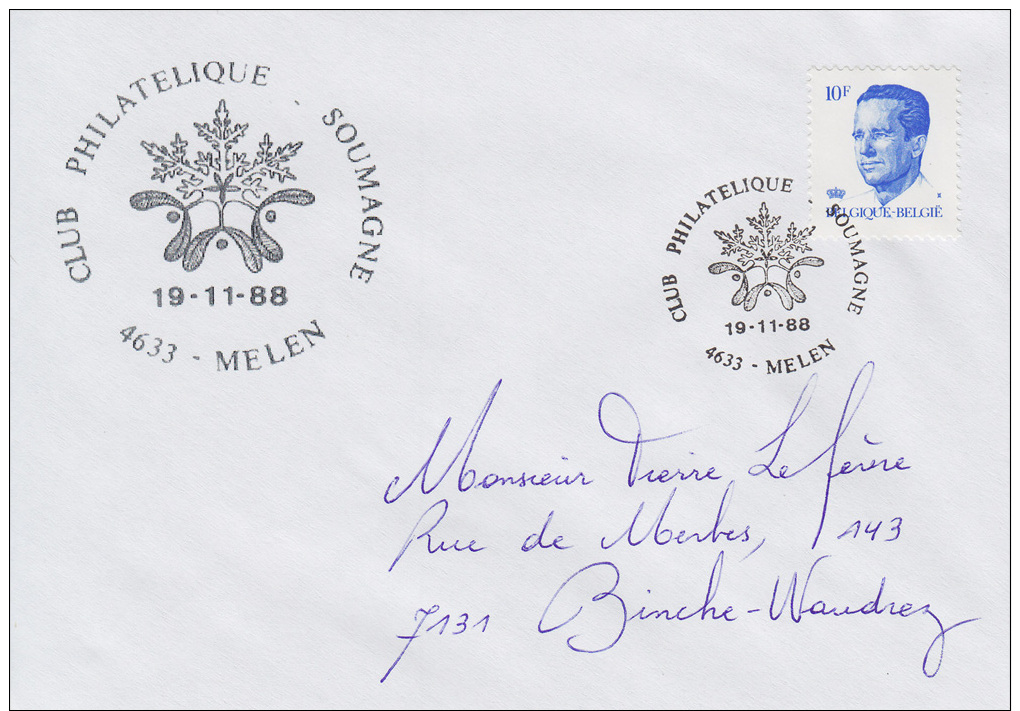 CLUB PHILATELIQUE SOUMAGNE
19-11-88
4633 - MELEN
10F
BELGIQUE-BELGIË
CLUB PHILATELIQUE SOUMAGNE
19-11-88
4633 - MELEN
Monsieur Pierre Lefèvre
Rue de Merbes, 143
7131 Binche-Waudrez